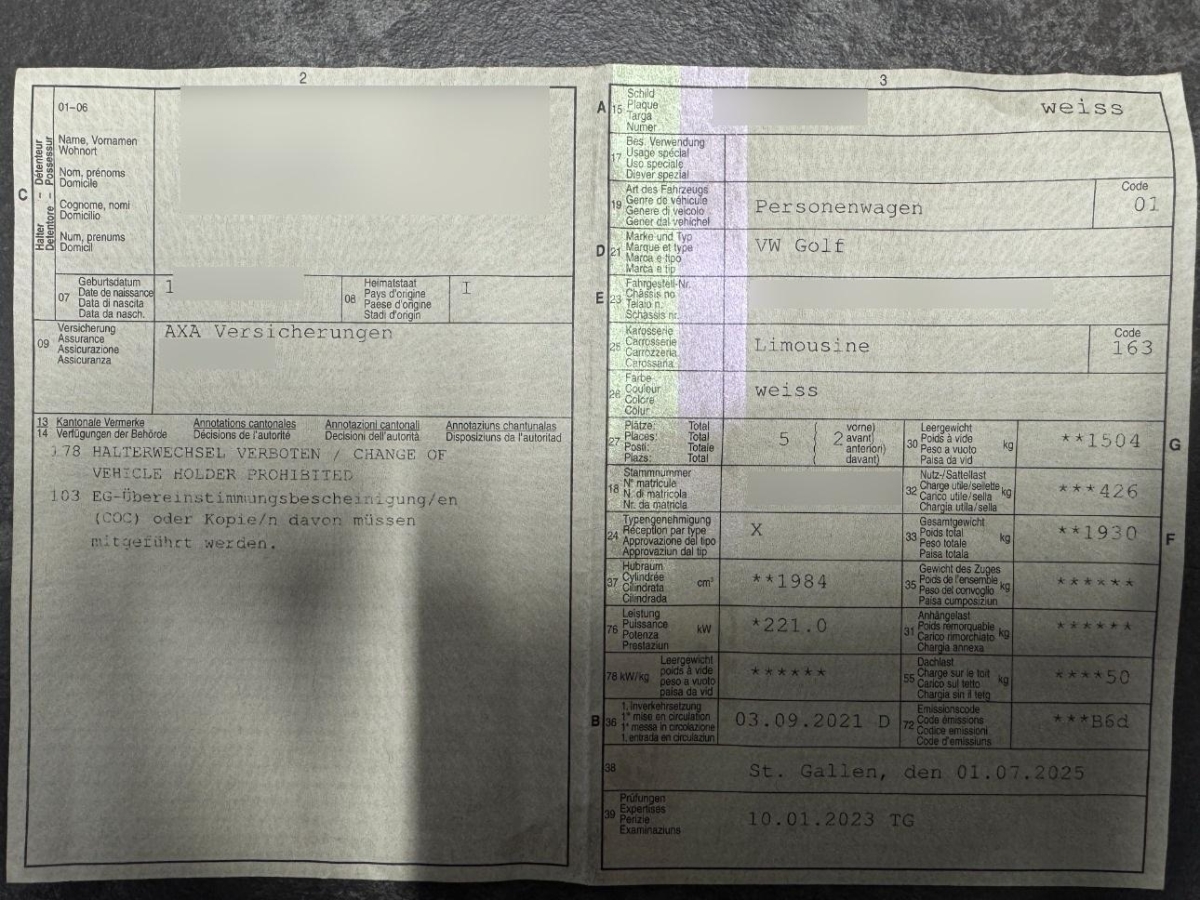 2
01-06
Halter – Détenteur
Detentore – Possessur
C
Name, Vornamen
Wohnort
Nom, prénoms
Domicile
Cognome, nomi
Domicilio
Num, prenums
Domicil
07
Geburtsdatum
Date de naissance
Data di nascita
Data da nasch.
1
08
Heimatstaat
Pays d'origine
Paese d'origine
Stadi d'origin
I
09
Versicherung
Assurance
Assicurazione
Assicuranza
AXA Versicherungen
13 Kantonale Vermerke Annotations cantonales Annotazioni cantonali Annotaziuns chantunalas
14 Verfügungen der Behörde Décisions de l'autorité Decisioni dell'autorità Disposiziuns da l'autoritad
178 HALTERWECHSEL VERBOTEN / CHANGE OF
VEHICLE HOLDER PROHIBITED
103 EG-Übereinstimmungsbescheinigung/en
(COC) oder Kopie/n davon müssen
mitgeführt werden.
3
A 15
Schild
Plaque
Targa
Numer
weiss
17
Bes. Verwendung
Usage spécial
Uso speciale
Diever spezial
19
Art des Fahrzeugs
Genre de véhicule
Genere di veicolo
Gener dal vehichel
Personenwagen
Code
01
D 21
Marke und Typ
Marque et type
Marca e tipo
Marca e tip
VW Golf
E 23
Fahrgestell-Nr.
Châssis no
Telaio n.
Schassis nr.
25
Karosserie
Carrosserie
Carrozzeria
Carossaria
Limousine
Code
163
26
Farbe
Couleur
Colore
Colur
weiss
27
Plätze: Total
Places: Total
Posti: Totale
Plazs: Total
5 ( 2 vorne)
avant)
anteriori)
davant)
30
Leergewicht
Poids à vide
Peso a vuoto
Paisa da vid
kg
**1504
G
18
Stammnummer
N° matricule
N. di matricola
Nr. da matricla
32
Nutz-/Sattellast
Charge utile/sellette
Carico utile/sella
Chargia utila/sella
kg
***426
24
Typengenehmigung
Réception par type
Approvazione del tipo
Approvaziun dal tip
X
33
Gesamtgewicht
Poids total
Peso totale
Paisa totala
kg
**1930
F
37
Hubraum
Cylindrée
Cilindrata
Cilindrada
cm³
**1984
35
Gewicht des Zuges
Poids de l'ensemble
Peso del convoglio
Paisa cumposiziun
kg
******
76
Leistung
Puissance
Potenza
Prestaziun
kW
*221.0
31
Anhängelast
Poids remorquable
Carico rimorchiato
Chargia annexa
kg
******
78 kW/kg
Leergewicht
poids à vide
peso a vuoto
paisa da vid
******
55
Dachlast
Charge sur le toit
Carico sul tetto
Chargia sin il tetg
kg
****50
B 36
1. Inverkehrsetzung
1re mise en circulation
1a messa in circolazione
1. entrada en circulaziun
03.09.2021 D
72
Emissionscode
Code émissions
Codice emissioni
Code d'emissiuns
***B6d
38
St. Gallen, den 01.07.2025
39
Prüfungen
Expertises
Perizie
Examinaziuns
10.01.2023 TG